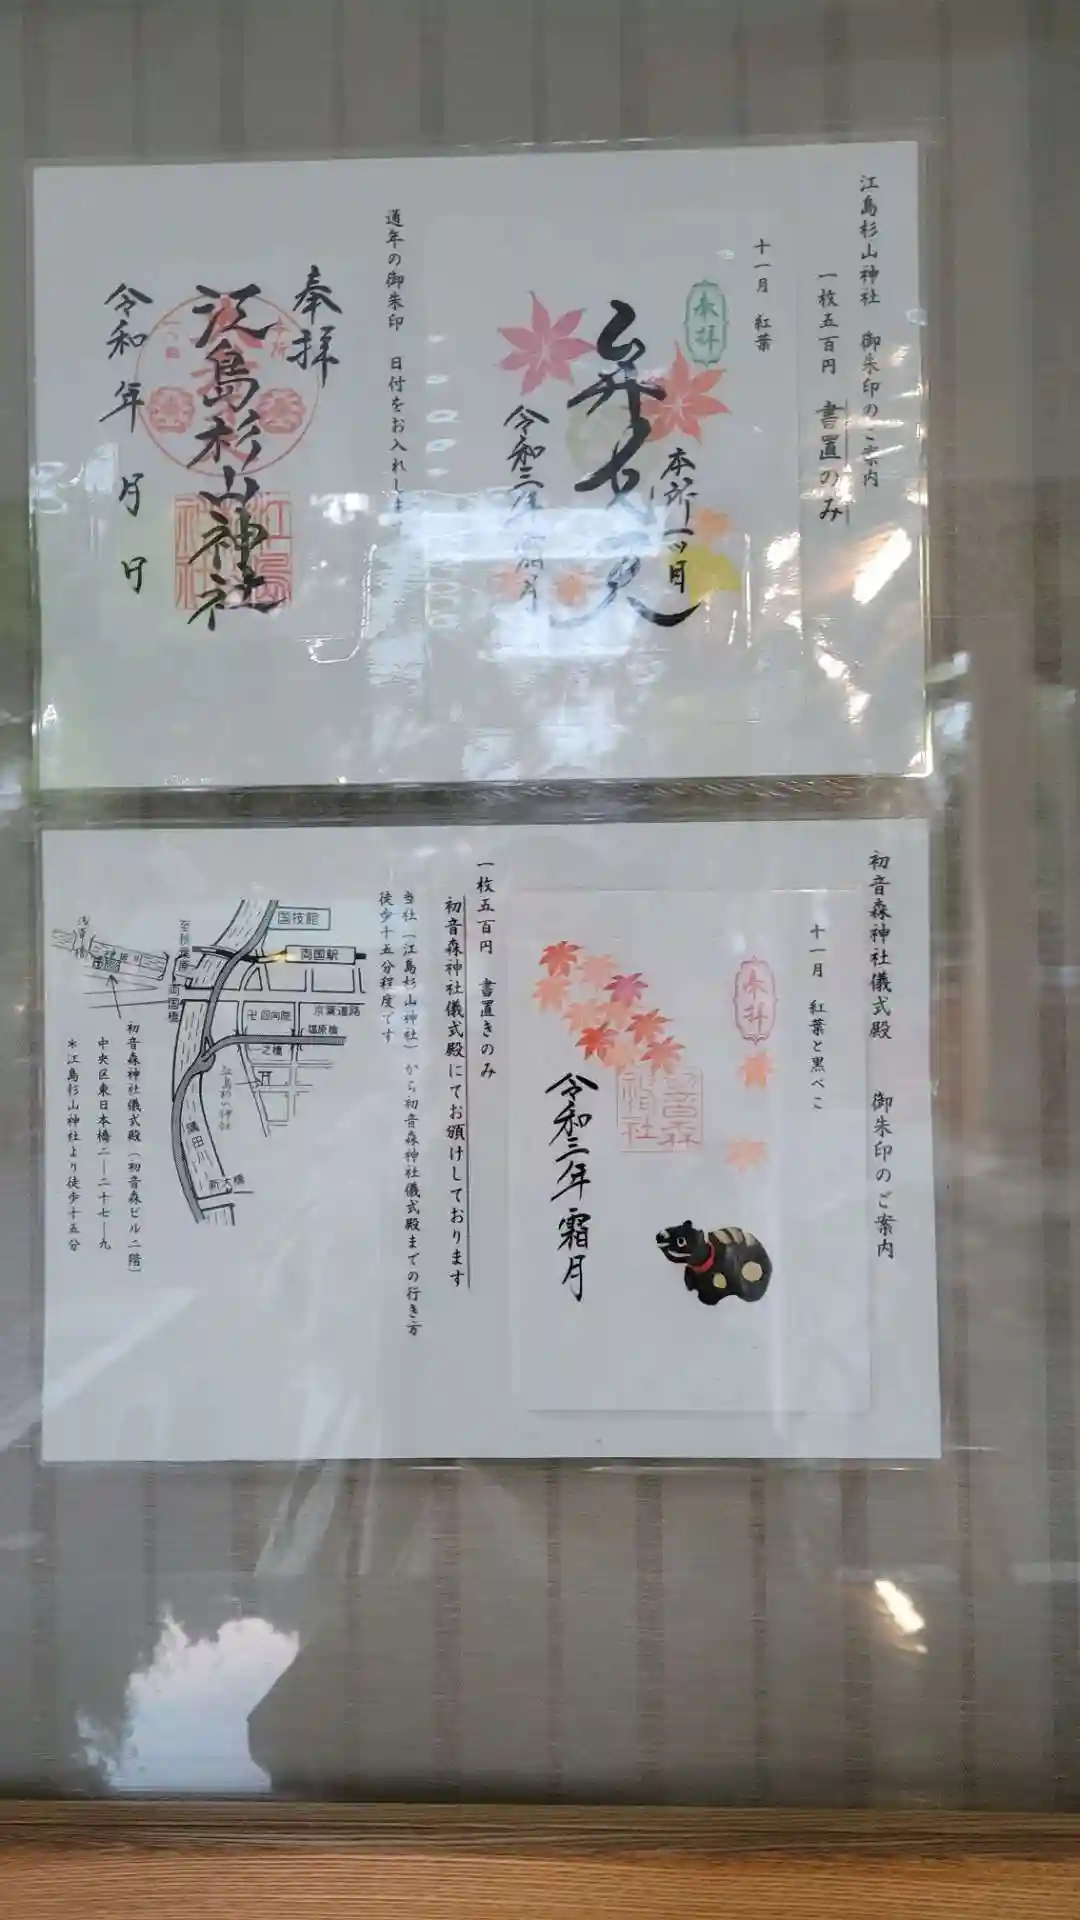 江島杉山神社 御朱印のご案内
一枚五百円 書置のみ
十一月 紅葉
奉拝
本所一ッ目
弁才天
令和三年霜月
通年の御朱印 日付をお入れします
奉拝
本所
一つ目
江島杉山神社
令和 年 月 日
初音森神社儀式殿 御朱印のご案内
十一月 紅葉と黒べこ
奉拝
初音森神社
令和三年 霜月
一枚五百円 書置きのみ
初音森神社儀式殿にてお頒けしております
当社(江島杉山神社)から初音森神社儀式殿までの行き方
徒歩十五分程度です
国技館
両国駅
至秋葉原
両国橋
浅草橋
京葉道路
卍 回向院
一之橋
江島杉山神社
隅田川
新大橋
初音森神社儀式殿(初音森ビル二階)
中央区東日本橋二ー二十七ー九
*江島杉山神社より徒歩十五分